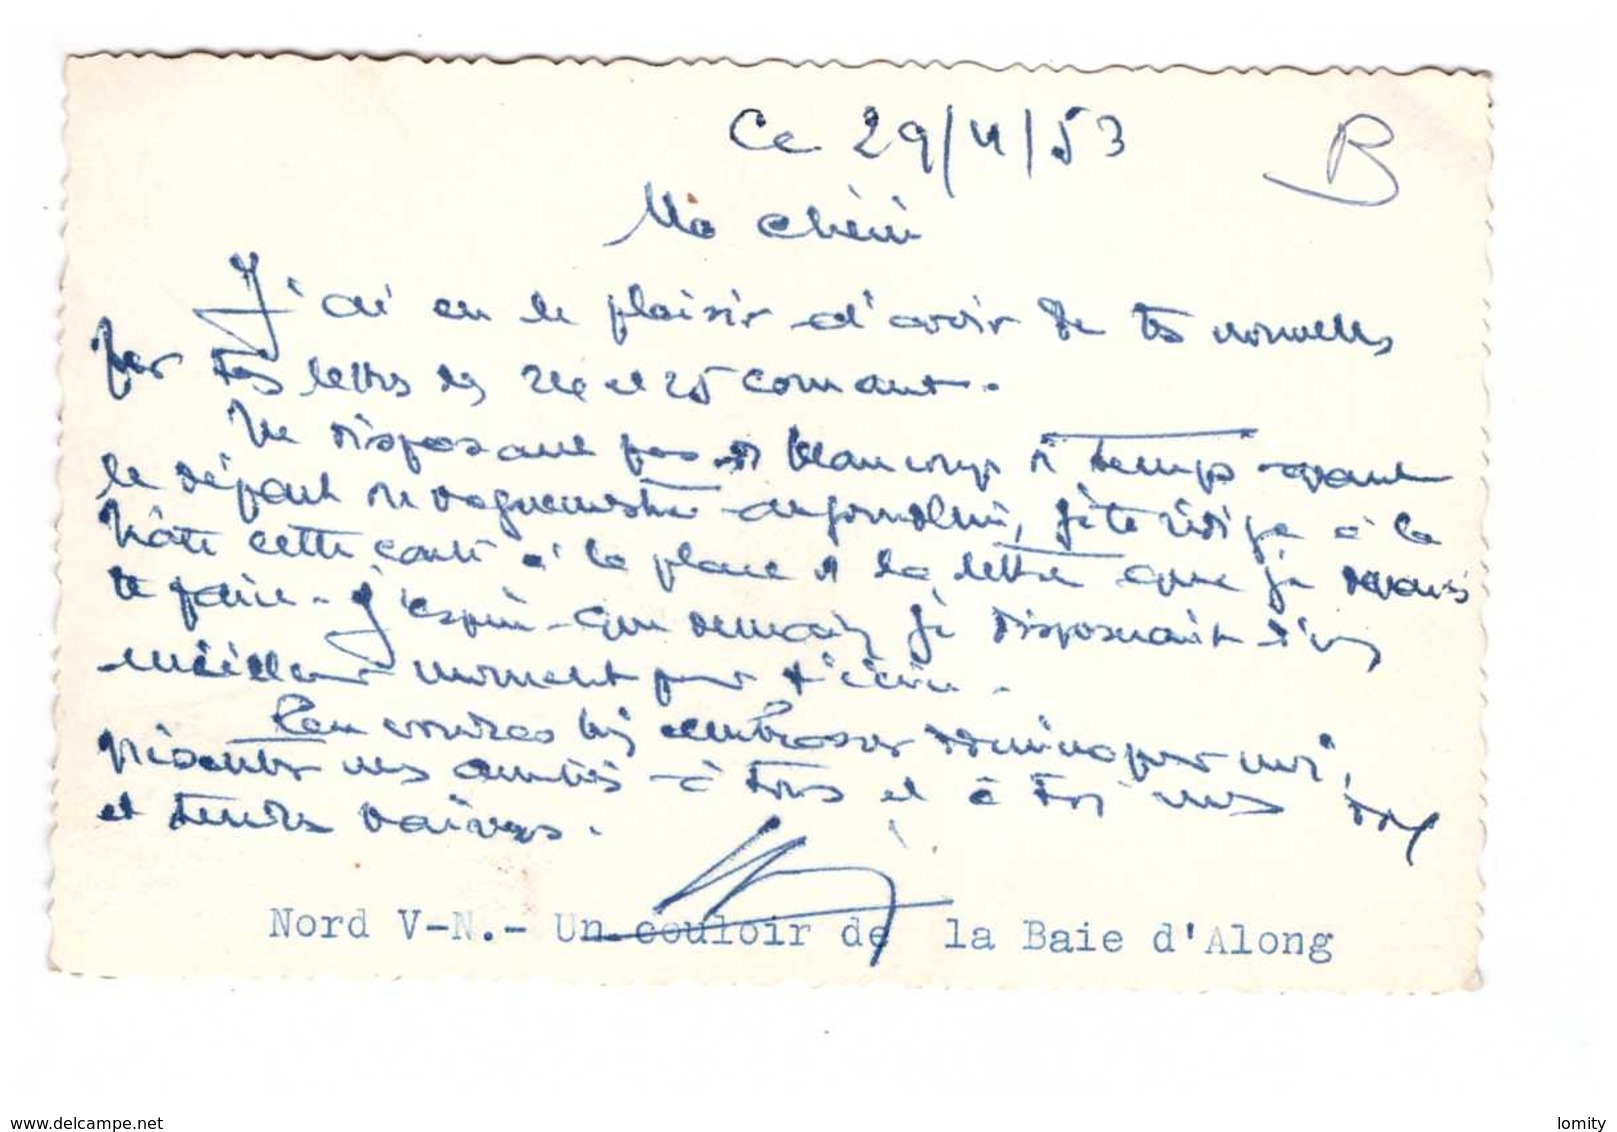 Ce 29/4/53
B
Ma chérie
J'ai eu le plaisir d'avoir de tes nouvelles
par tes lettres des 24 et 25 courant.
Ne disposant pas de beaucoup de temps avant
le départ du vaguemestre aujourd'hui, je te rédige à la
hâte cette carte à la place de la lettre que je devais
te faire. J'espère que demain je disposerait d'un
meilleur moment pour t'écrire.
Tu voudras bien embrasser pour moi,
présenter mes amitiés à tous et à toi mes
et tendres baisers.
Nord V-N.- Un couloir de la Baie d'Along
www.delcampe.net
lomity